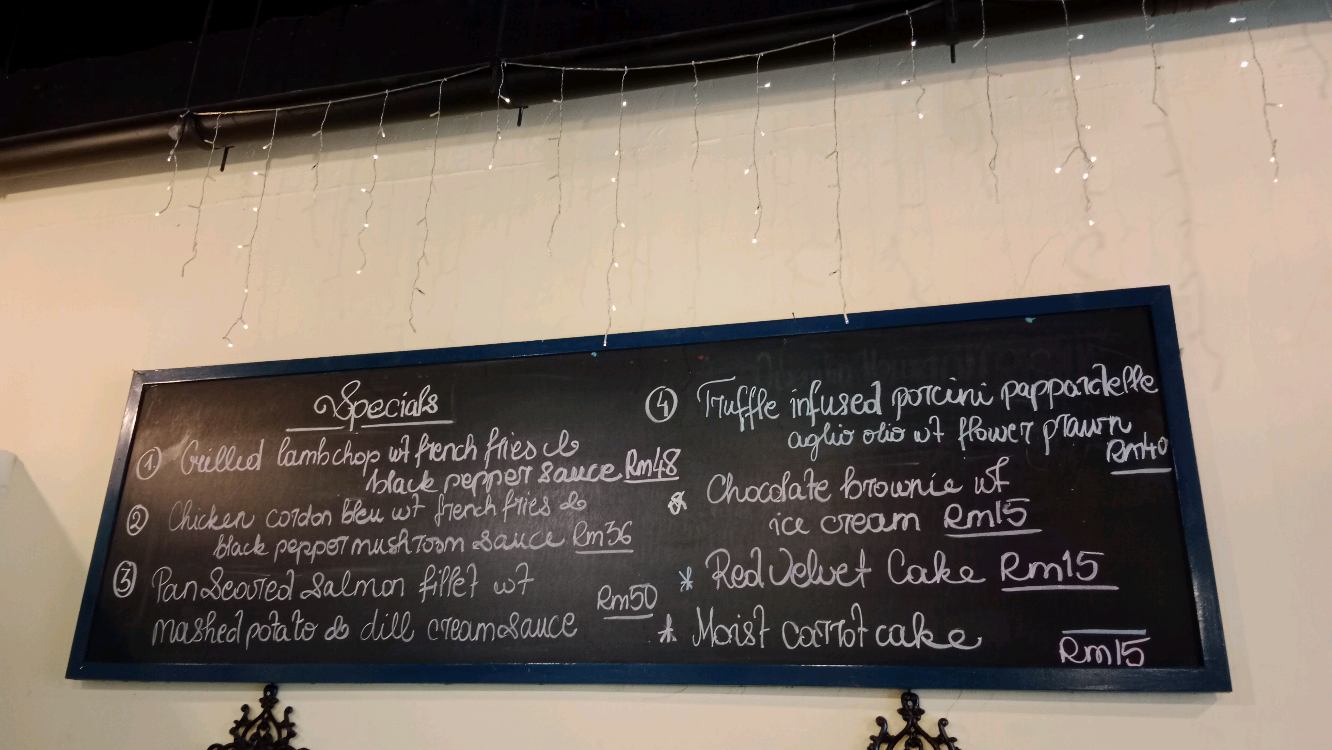 Specials
① Grilled lambchop wt french fries &
black pepper sauce Rm48
② Chicken cordon bleu wt french fries &
black pepper mushroom sauce Rm36
③ Pan Seared Salmon fillet wt
mashed potato & dill cream sauce Rm50
④ Truffle infused porcini pappardelle
aglio olio wt flower prawn
Rm40
* Chocolate brownie wt
ice cream Rm15
* Red Velvet Cake Rm15
* Moist carrot cake
Rm15